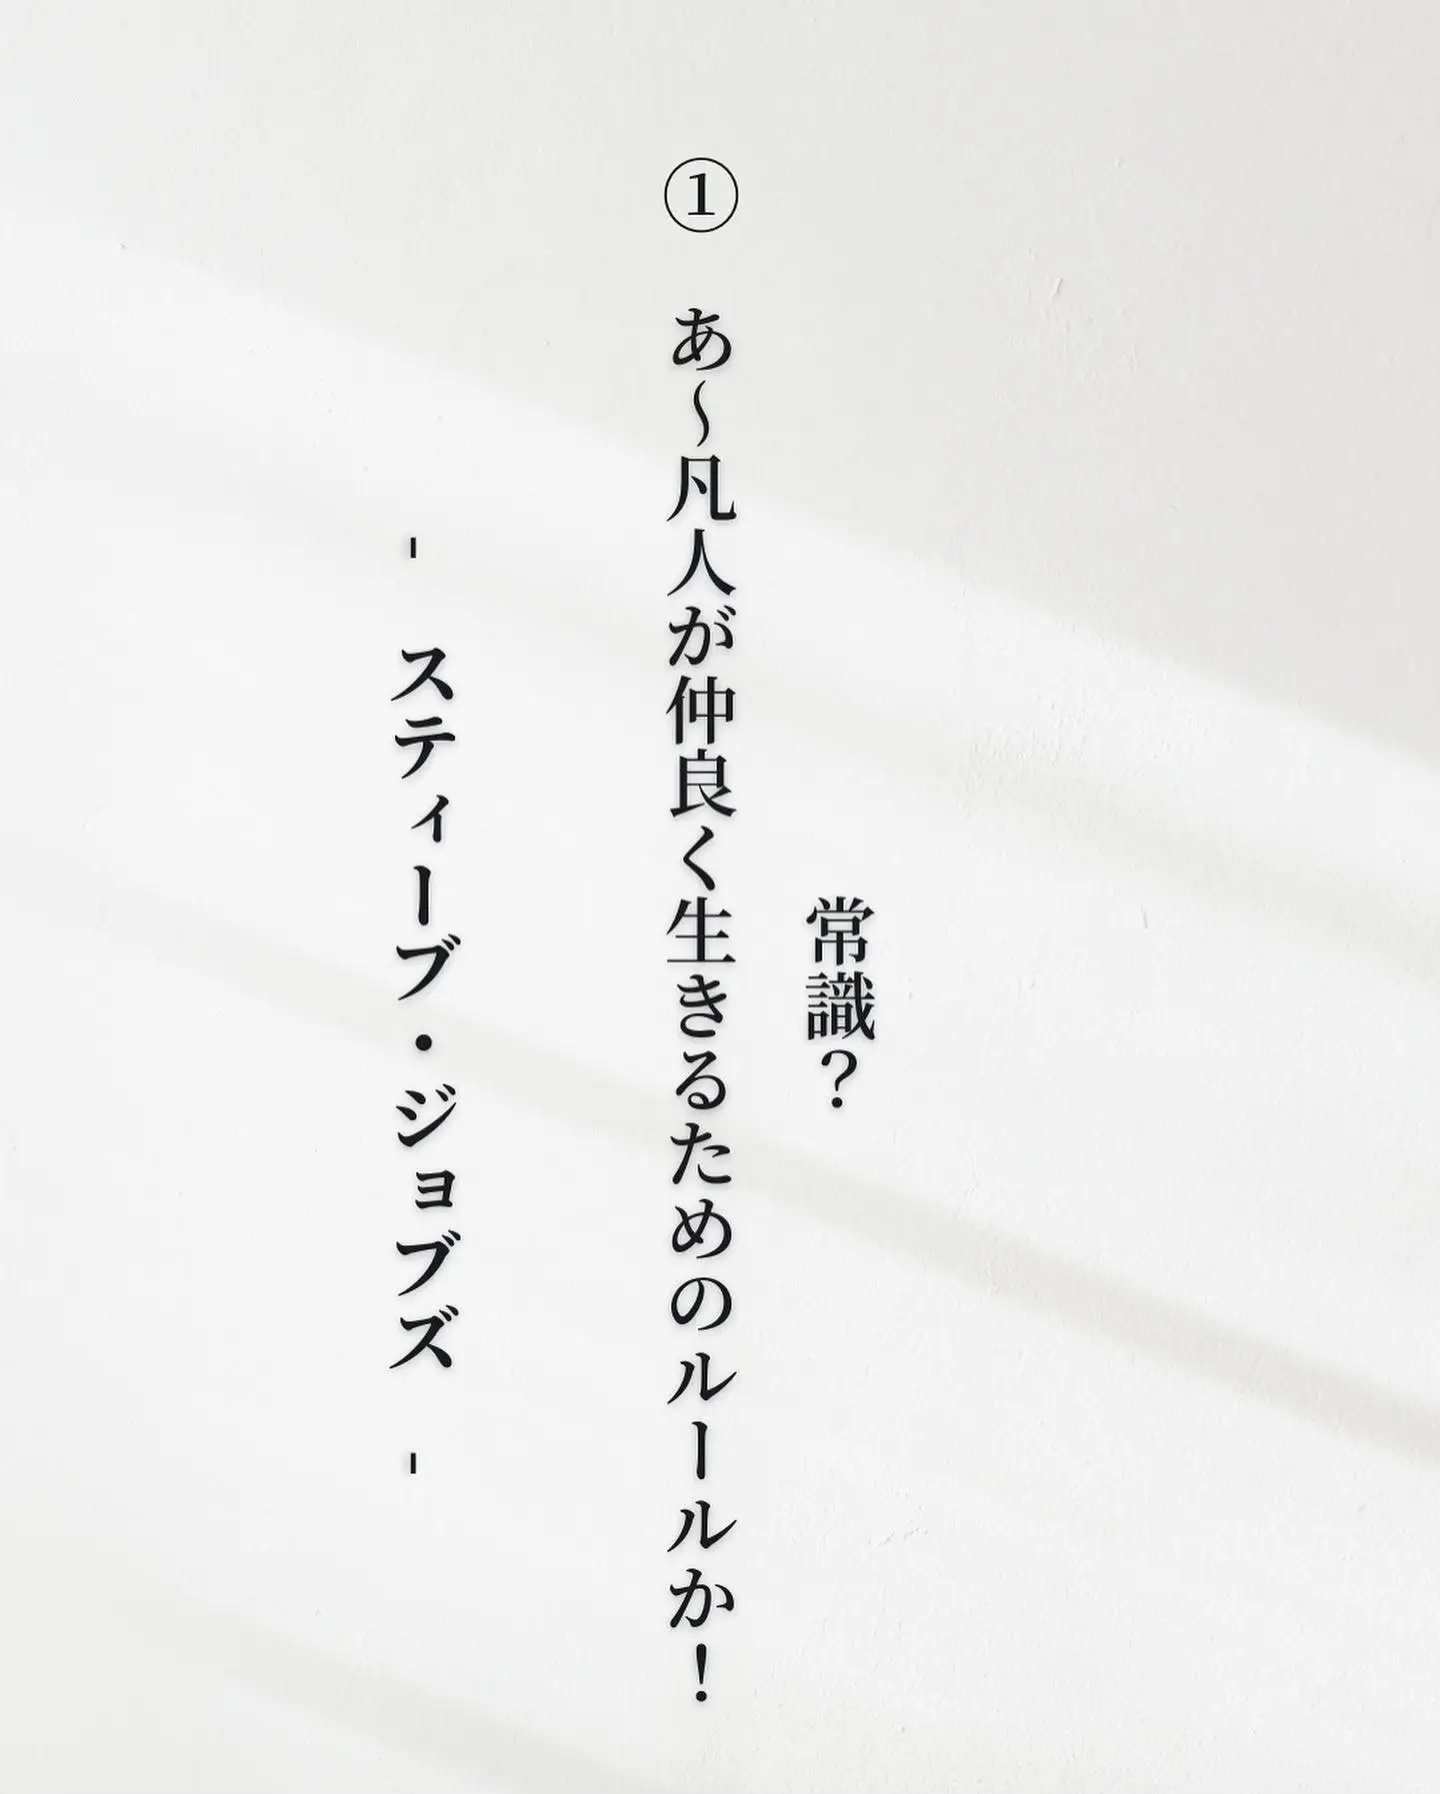 常識?
① あ〜凡人が仲良く生きるためのルールか!
- スティーブ・ジョブズ -